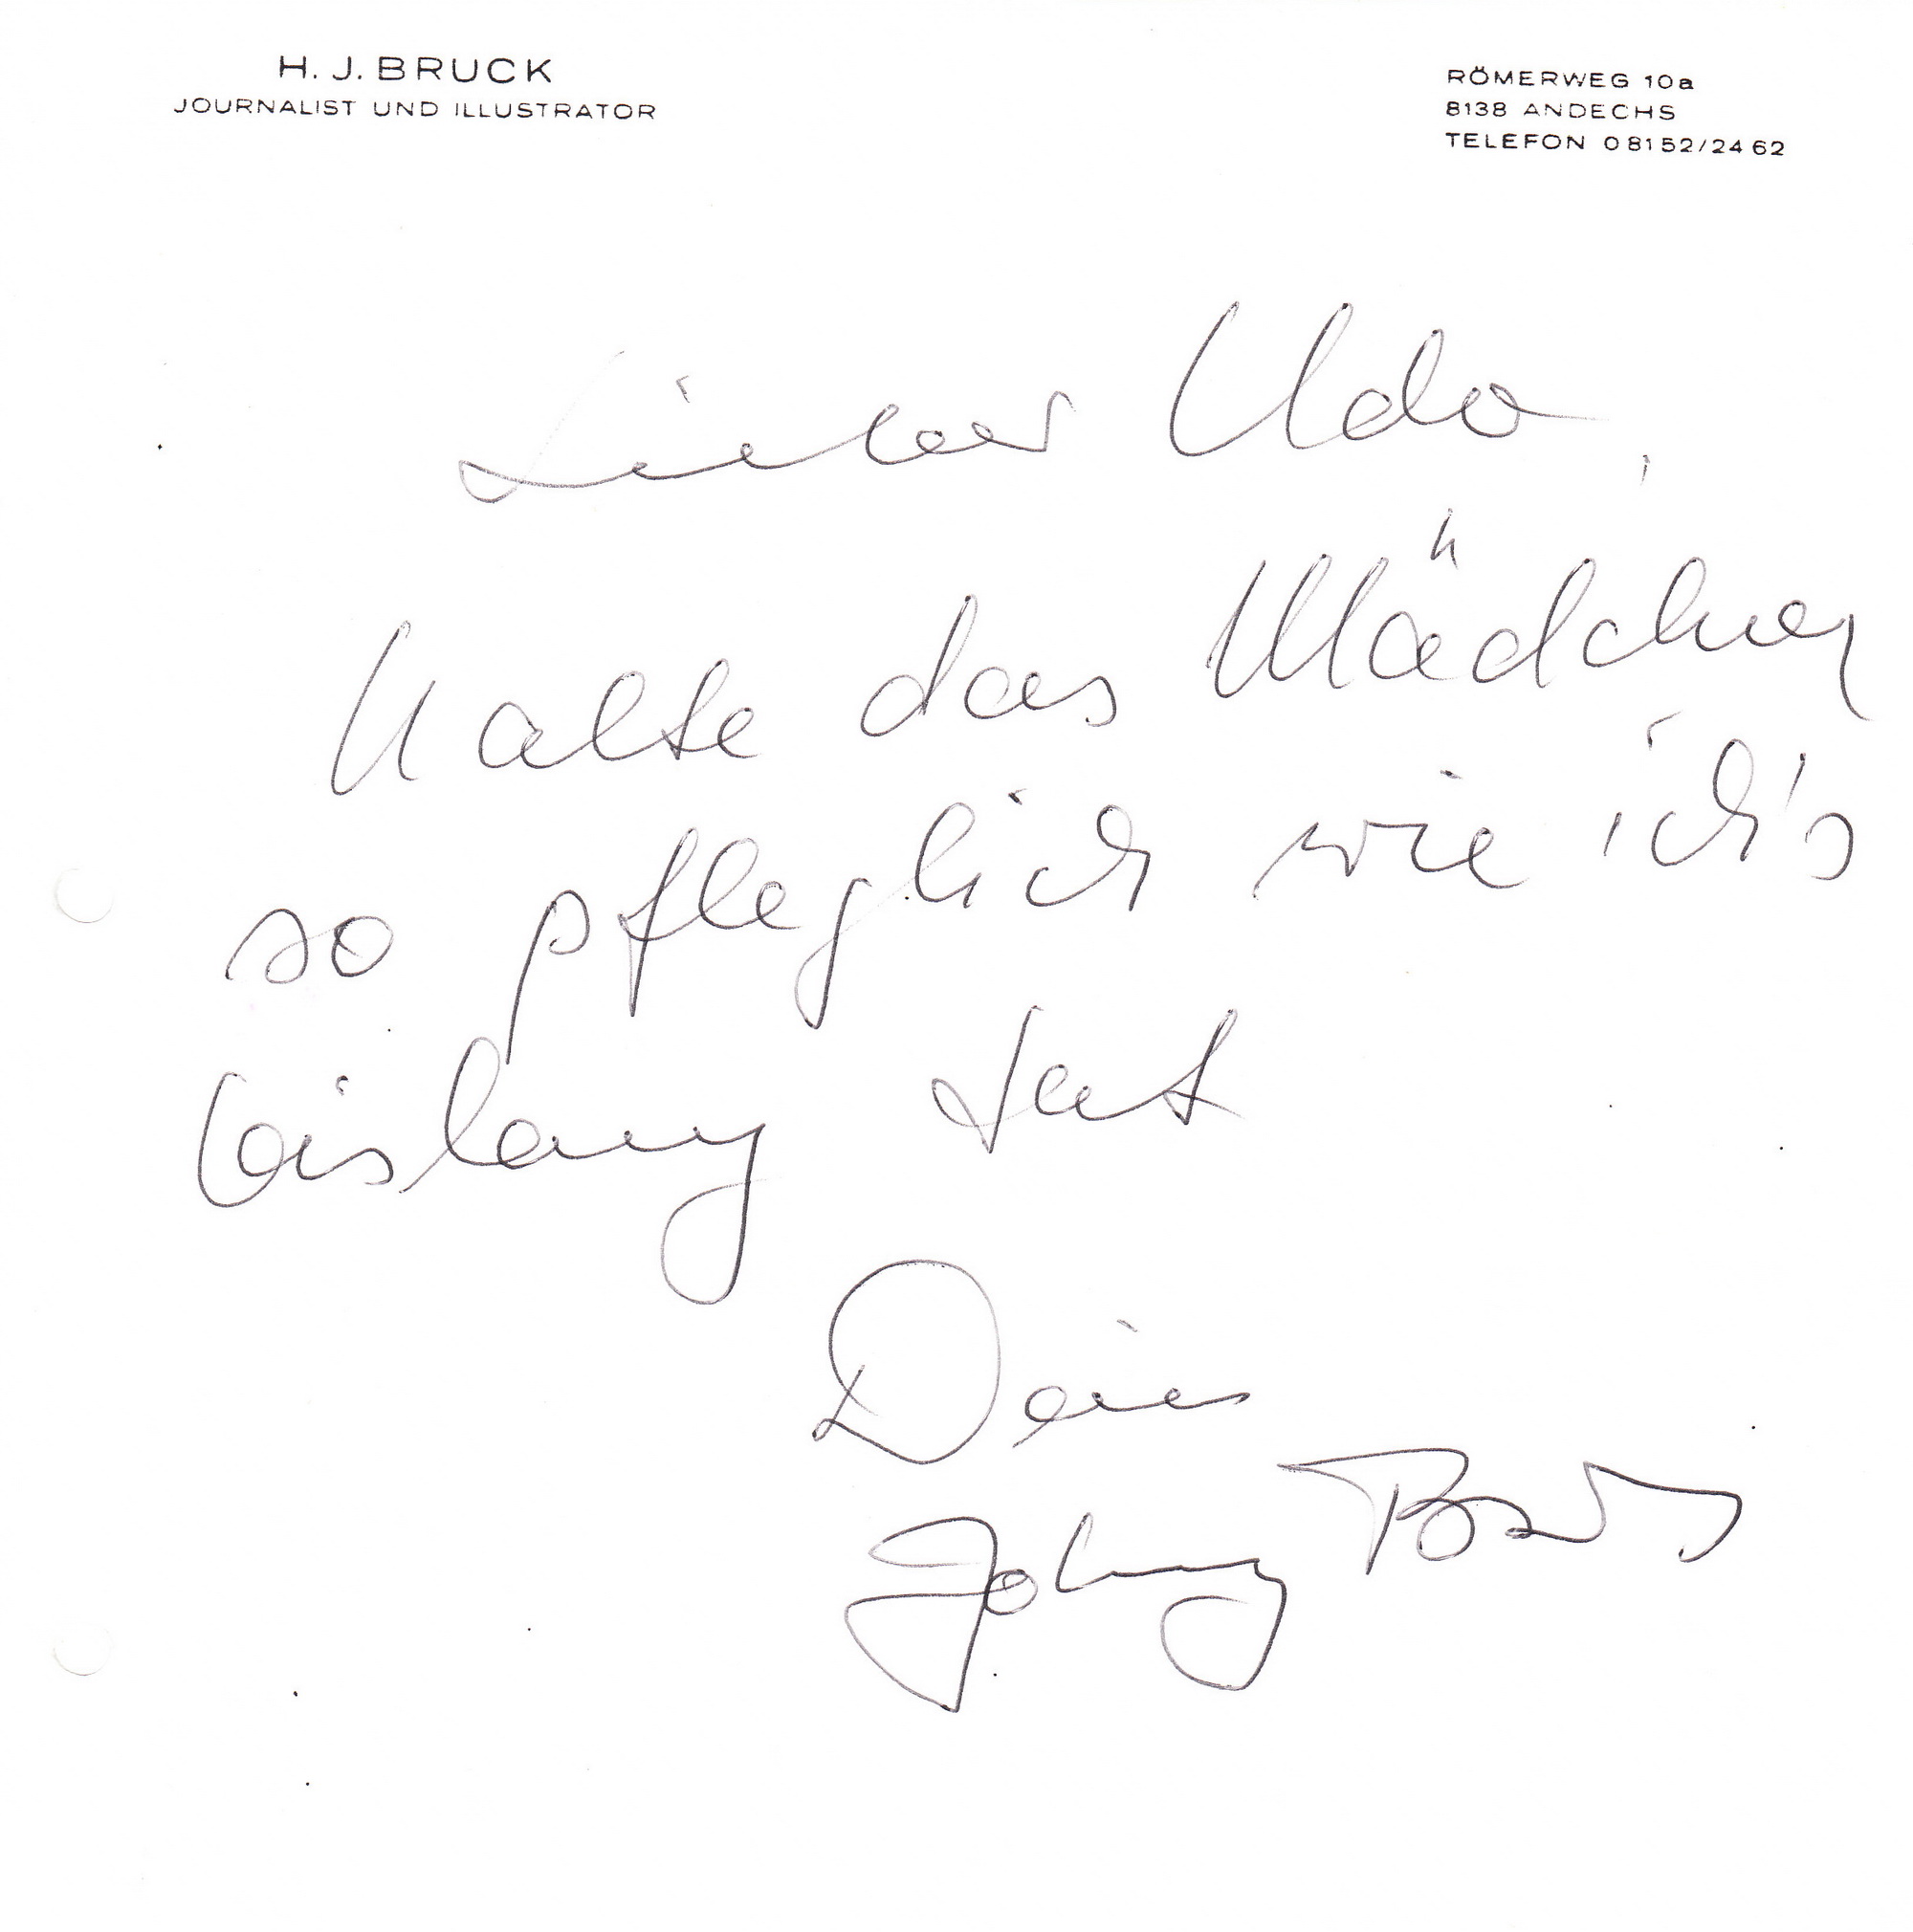 H. J. BRUCK
JOURNALIST UND ILLUSTRATOR
RÖMERWEG 10a
8138 ANDECHS
TELEFON 08152/24 62
Lieber Udo,
halte das Mädchen
so pfleglich wie ich's
bislang tat
Dein
Johnny Bruck